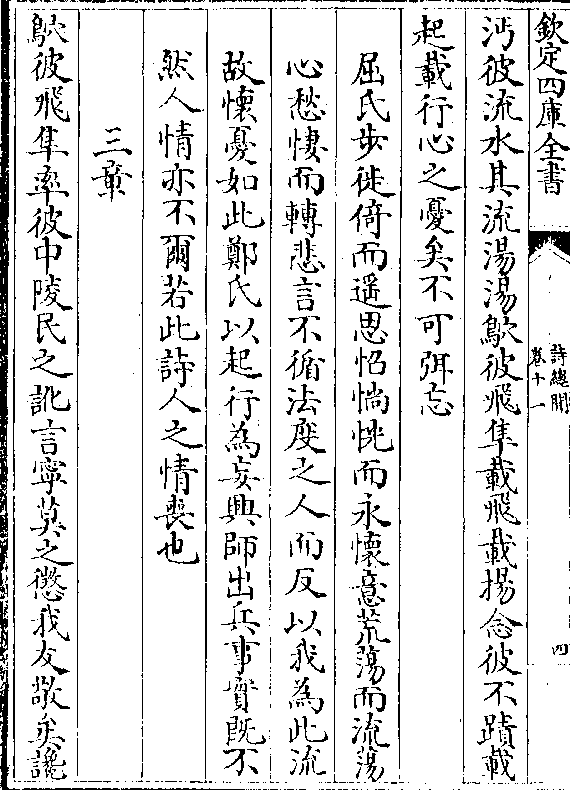 欽定四庫全書
詩總聞
卷十一
四
沔彼流水其流湯湯鴥彼飛隼載飛載揚念彼不蹟載
起載行心之憂矣不可弭忘
屈氏步徙倚而遥思怊惝怳而永懷意荒蕩而流蕩
心愁悽而轉悲言不循法度之人而反以我為此流
故懷憂如此鄭氏以起行為妄興師出兵事實既不
然人情亦不爾若此詩人之情喪也
三章
鴥彼飛隼率彼中陵民之訛言寧莫之懲我友敬矣讒